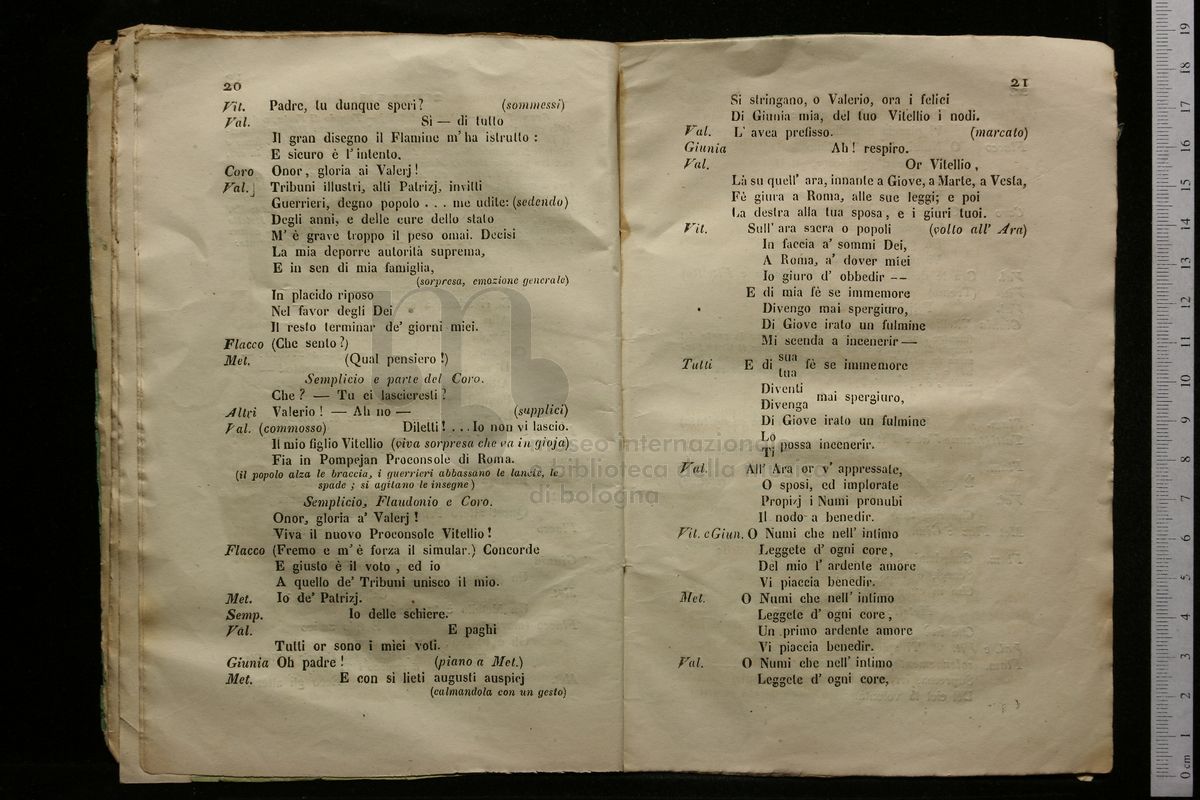 20
Vit. Padre, tu dunque speri? (sommessi)
Val. Sì — di tutto
Il gran disegno il Flamine m' ha istrutto :
E sicuro è l' intento.
Coro Onor, gloria ai Valerj!
Val. Tribuni illustri, alti Patrizj, invitti
Guerrieri, degno popolo . . . me udite: (sedendo)
Degli anni, e delle cure dello stato
M' è grave troppo il peso omai. Decisi
La mia deporre autorità suprema,
E in sen di mia famiglia,
(sorpresa, emozione generale)
In placido riposo
Nel favor degli Dei
Il resto terminar de' giorni miei.
Flacco (Che sento?)
Met. (Qual pensiero!)
Semplicio e parte del Coro.
Che? — Tu ci lascieresti?
Altri Valerio! — Ah no — (supplici)
Val. (commosso) Diletti! . . . Io non vi lascio.
Il mio figlio Vitellio (viva sorpresa che va in gioja)
Fia in Pompejan Proconsole di Roma.
(il popolo alza le braccia, i guerrieri abbassano le lancie, le
spade ; si agitano le insegne)
Semplicio, Flaudonio e Coro.
Onor, gloria a' Valerj!
Viva il nuovo Proconsole Vitellio!
Flacco (Fremo e m' è forza il simular.) Concorde
E giusto è il voto , ed io
A quello de' Tribuni unisco il mio.
Met. Io de' Patrizj.
Semp. Io delle schiere.
Val. E paghi
Tutti or sono i miei voti.
Giunia Oh padre! (piano a Met.)
Met. E con sì lieti augusti auspicj
(calmandola con un gesto)
21
Si stringano, o Valerio, ora i felici
Di Giunia mia, del tuo Vitellio i nodi.
Val. L' avea prefisso. (marcato)
Giunia Ah! respiro.
Val. Or Vitellio,
Là su quell' ara, innante a Giove, a Marte, a Vesta,
Fè giura a Roma, alle sue leggi; e poi
La destra alla tua sposa, e i giuri tuoi.
Vit. Sull' ara sacra o popoli (volto all' Ara)
In faccia a' sommi Dei,
A Roma, a' dover miei
Io giuro d' obbedir --
E di mia fè se immemore
Divengo mai spergiuro,
Di Giove irato un fulmine
Mi scenda a incenerir —
Tutti E di sua fè se immemore
tua
Diventi mai spergiuro,
Divenga
Di Giove irato un fulmine
Lo possa incenerir.
Ti
Val. All' Ara or v' appressate,
O sposi, ed implorate
Propizj i Numi pronubi
Il nodo a benedir.
Vit. e Giun. O Numi che nell' intimo
Leggete d' ogni core,
Del mio l' ardente amore
Vi piaccia benedir.
Met. O Numi che nell' intimo
Leggete d' ogni core,
Un primo ardente amore
Vi piaccia benedir.
Val. O Numi che nell' intimo
Leggete d' ogni core,
museo internazionale
e biblioteca della
di bologna
0 cm 1 2 3 4 5 6 7 8 9 10 11 12 13 14 15 16 17 18 19